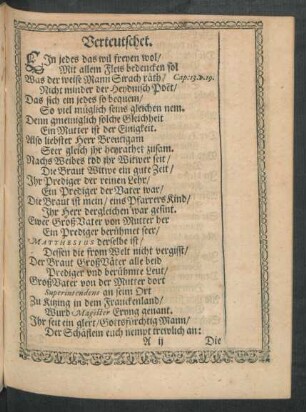 Verteutschet.
EIn jedes das wil freyen wol/
Mit allem Fleis bedencken sol
Was der weise Mann Sirach räth/ Cap:13.v.19.
Nicht minder der Heydnisch Poët/
Das sich ein jedes so bequem/
So viel müglich seins gleichen nem.
Denn gmeiniglich solche Gleichheit
Ein Mutter ist der Einigkeit.
Also liebster Herr Breutgam
Ster gleich ihr heyrathet zusam.
Nachs Weibes tod ihr Witwer seit/
Die Braut Witwe ein gute Zeit/
Ihr Prediger der reinen Lehr/
Ein Prediger der Vater war/
Die Braut ist mein/ eins Pfarrers Kind/
Ihr Herr dergleichen war gesint.
Ewer GroßVater von Mutter her
Ein Prediger berühmet seer/
MATTHESIUS derselbe ist/
Dessen die from Welt nicht vergisst/
Der Braut GroßVäter alle beid
Prediger vnd berühmte Leut/
GroßVater von der Mutter dort
Superintendens an seim Ort
Zu Kitzing in dem Franckenland/
Wurd Magister genant.
Ihr seit ein glert/ Gottsfürchtig Mann/
Der Schäflein euch nempt trewlich an:
A ij Die